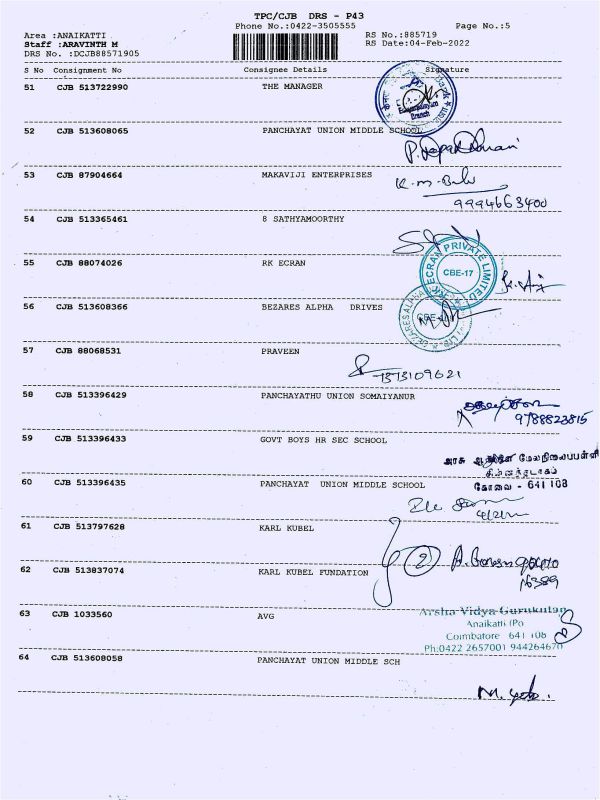 TPC/CJB DRS - P43
Phone No.:0422-3505555
Page No.:5
Area :ANAIKATTI
RS No.:885719
Staff :ARAVINTH M
RS Date:04-Feb-2022
DRS No. :DCJB88571905
S No Consignment No Consignee Details Signature
51 CJB 513722990 THE MANAGER
Branch
52 CJB 513608065 PANCHAYAT UNION MIDDLE SCHOOL
53 CJB 87904664 MAKAVIJI ENTERPRISES
K.m. Balu
9994663400
54 CJB 513365461 8 SATHYAMOORTHY
55 CJB 88074026 RK ECRAN
RK ECRAN PRIVATE LIMITED
CBE-17
56 CJB 513608366 BEZARES ALPHA DRIVES
57 CJB 88068531 PRAVEEN
58 CJB 513396429 PANCHAYATHU UNION SOMAIYANUR
9788823815
59 CJB 513396433 GOVT BOYS HR SEC SCHOOL
அரசு ஆண்கள் மேலநிலைப்பள்ளி
சின்னத்தடாகம்
கோவை - 641 108
60 CJB 513396435 PANCHAYAT UNION MIDDLE SCHOOL
4/2/22
61 CJB 513797628 KARL KUBEL
2
62 CJB 513837074 KARL KUBEL FUNDATION
63 CJB 1033560 AVG
Arsha Vidya Gurukulam
Anaikatti (Po
Coimbatore 641 108
Ph:0422 2657001 944264670
64 CJB 513608058 PANCHAYAT UNION MIDDLE SCH